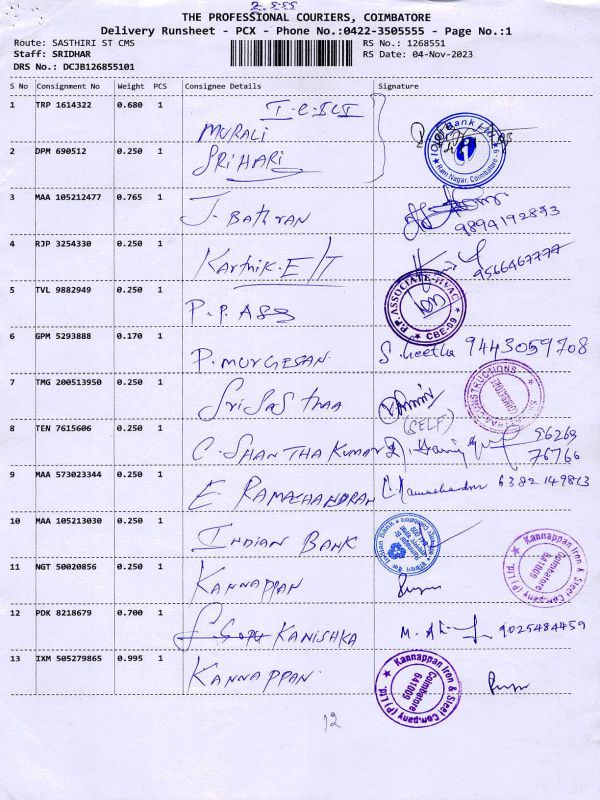 THE PROFESSIONAL COURIERS, COIMBATORE
Delivery Runsheet - PCX - Phone No.:0422-3505555 - Page No.:1
Route: SASTHIRI ST CMS
RS No.: 1268551
Staff: SRIDHAR
RS Date: 04-Nov-2023
DRS No.: DCJB126855101
S No Consignment No Weight PCS Consignee Details Signature
1 TRP 1614322 0.680 1
MURALI
2 DPM 690512 0.250 1 SRIHARI
3 MAA 105212477 0.765 1 J. BATHRAN 9894192893
4 RJP 3254330 0.250 1 Karthik. E/T 9566467777
5 TVL 9882949 0.250 1 P. P. ASS P.P. ASSOCIATE-HVAC CBE-09
6 GPM 5293888 0.170 1 P. MURGESAN 9443059708
7 TMG 200513950 0.250 1 Sri Sasthaa (SELF)
8 TEN 7615606 0.250 1 C. SHANTHA KUMAR 96269 76766
9 MAA 573023344 0.250 1 E. RAMACHANDRAN 6382149813
10 MAA 105213030 0.250 1 INDIAN BANK
11 NGT 50020856 0.250 1 KANNAPPAN Kannappan Iron & Steel Company (P) Ltd. Coimbatore 641009
12 PDK 8218679 0.700 1 KANISHKA 9025484459
13 IXM 505279865 0.995 1 KANNAPPAN Kannappan Iron & Steel Company (P) Ltd. Coimbatore 641009
12